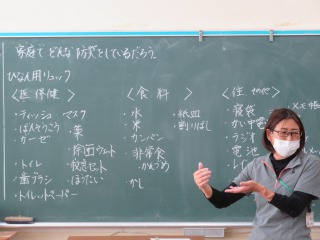 家庭で どんな防災をしているだろう。
ひなん用リュック
<医・保健>
・ティッシュ マスク
・ばんそうこう ・薬
・ガーゼ
・除菌ウェット
・トイレ ・救急セット
・歯ブラシ ・ほうたい
・トイレットペーパー
<食料>
・水 ・紙皿
・米 ・割りばし
・カンパン
・非常食
・かんづめ
・かし
<住 その他>
・寝袋
・かい中電
・ラジオ
・電池